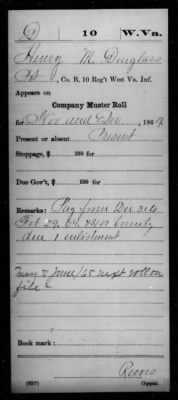 D 10 W.Va.
Henry M. Douglass
Pvt, Co. B, 10 Reg't West Va. Inf.
Appears on
Company Muster Roll
for Nov and Dec, 1864.
Present or absent Present
Stoppage, $ 100 for
Due Gov't, $ 100 for
Remarks: Pay from Dec 31 to
Feb 29, 64. bounty
due 1 enlistment
May & June/65 next roll on
file
Book mark:
(357) Copyist.